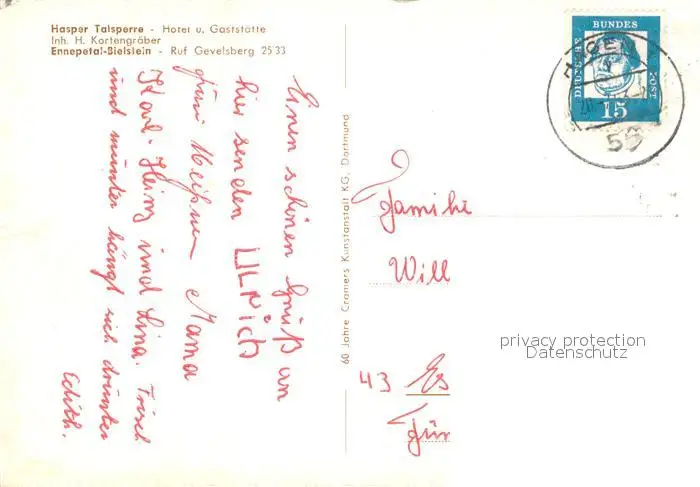 Hasper Talsperre - Hotel u. Gaststätte
Inh. H. Kortengräber
Ennepetal-Bielstein - Ruf Gevelsberg 25 33
Einen schönen Gruß von
hier senden ULRICH
Mama
Karl-Heinz und Lina. Frisch
und munter hängt sich drunter
Edith.
60 Jahre Cramers Kunstanstalt KG. Dortmund
DEUTSCHE BUNDESPOST
15
HAGEN
Familie
Will
43 Es
privacy protection
Datenschutz